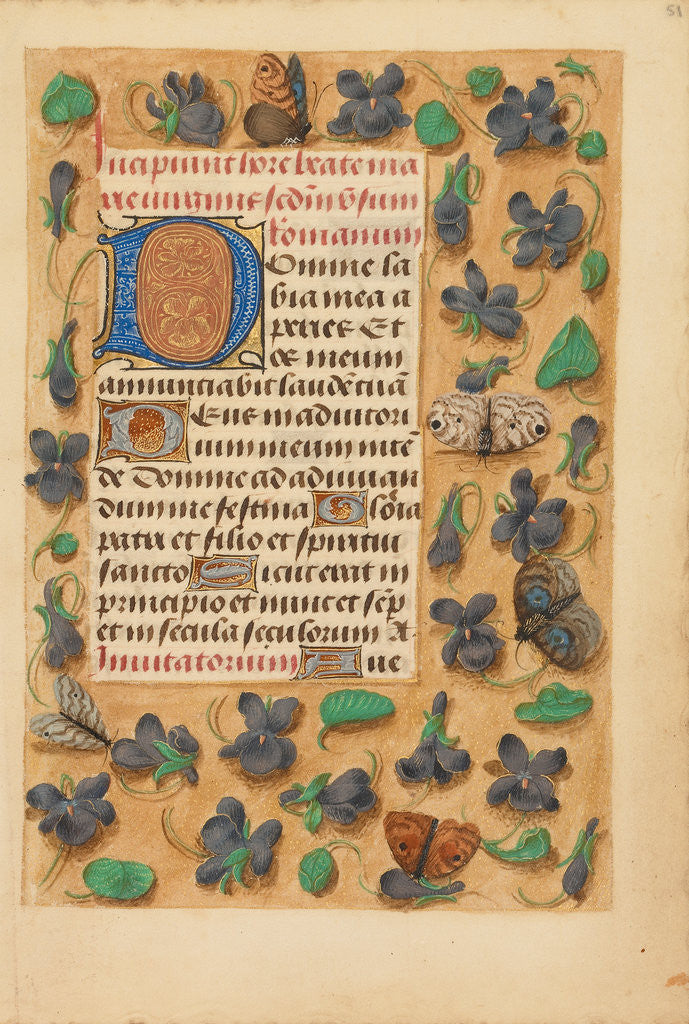 51
Incipiunt hore beate ma
rie uirginis scdm usum
Romanum
Domine la
bia mea a
peries Et
os meum
annunciabit laudē tuā
Deus in adiutori
um meum intē
de Domine ad adiuuan
dum me festina Glōria
patri et filio et spiritui
sancto Sicut erat in
principio et nunc et semp
et in secula seculorum A.
Inuitatorium Aue